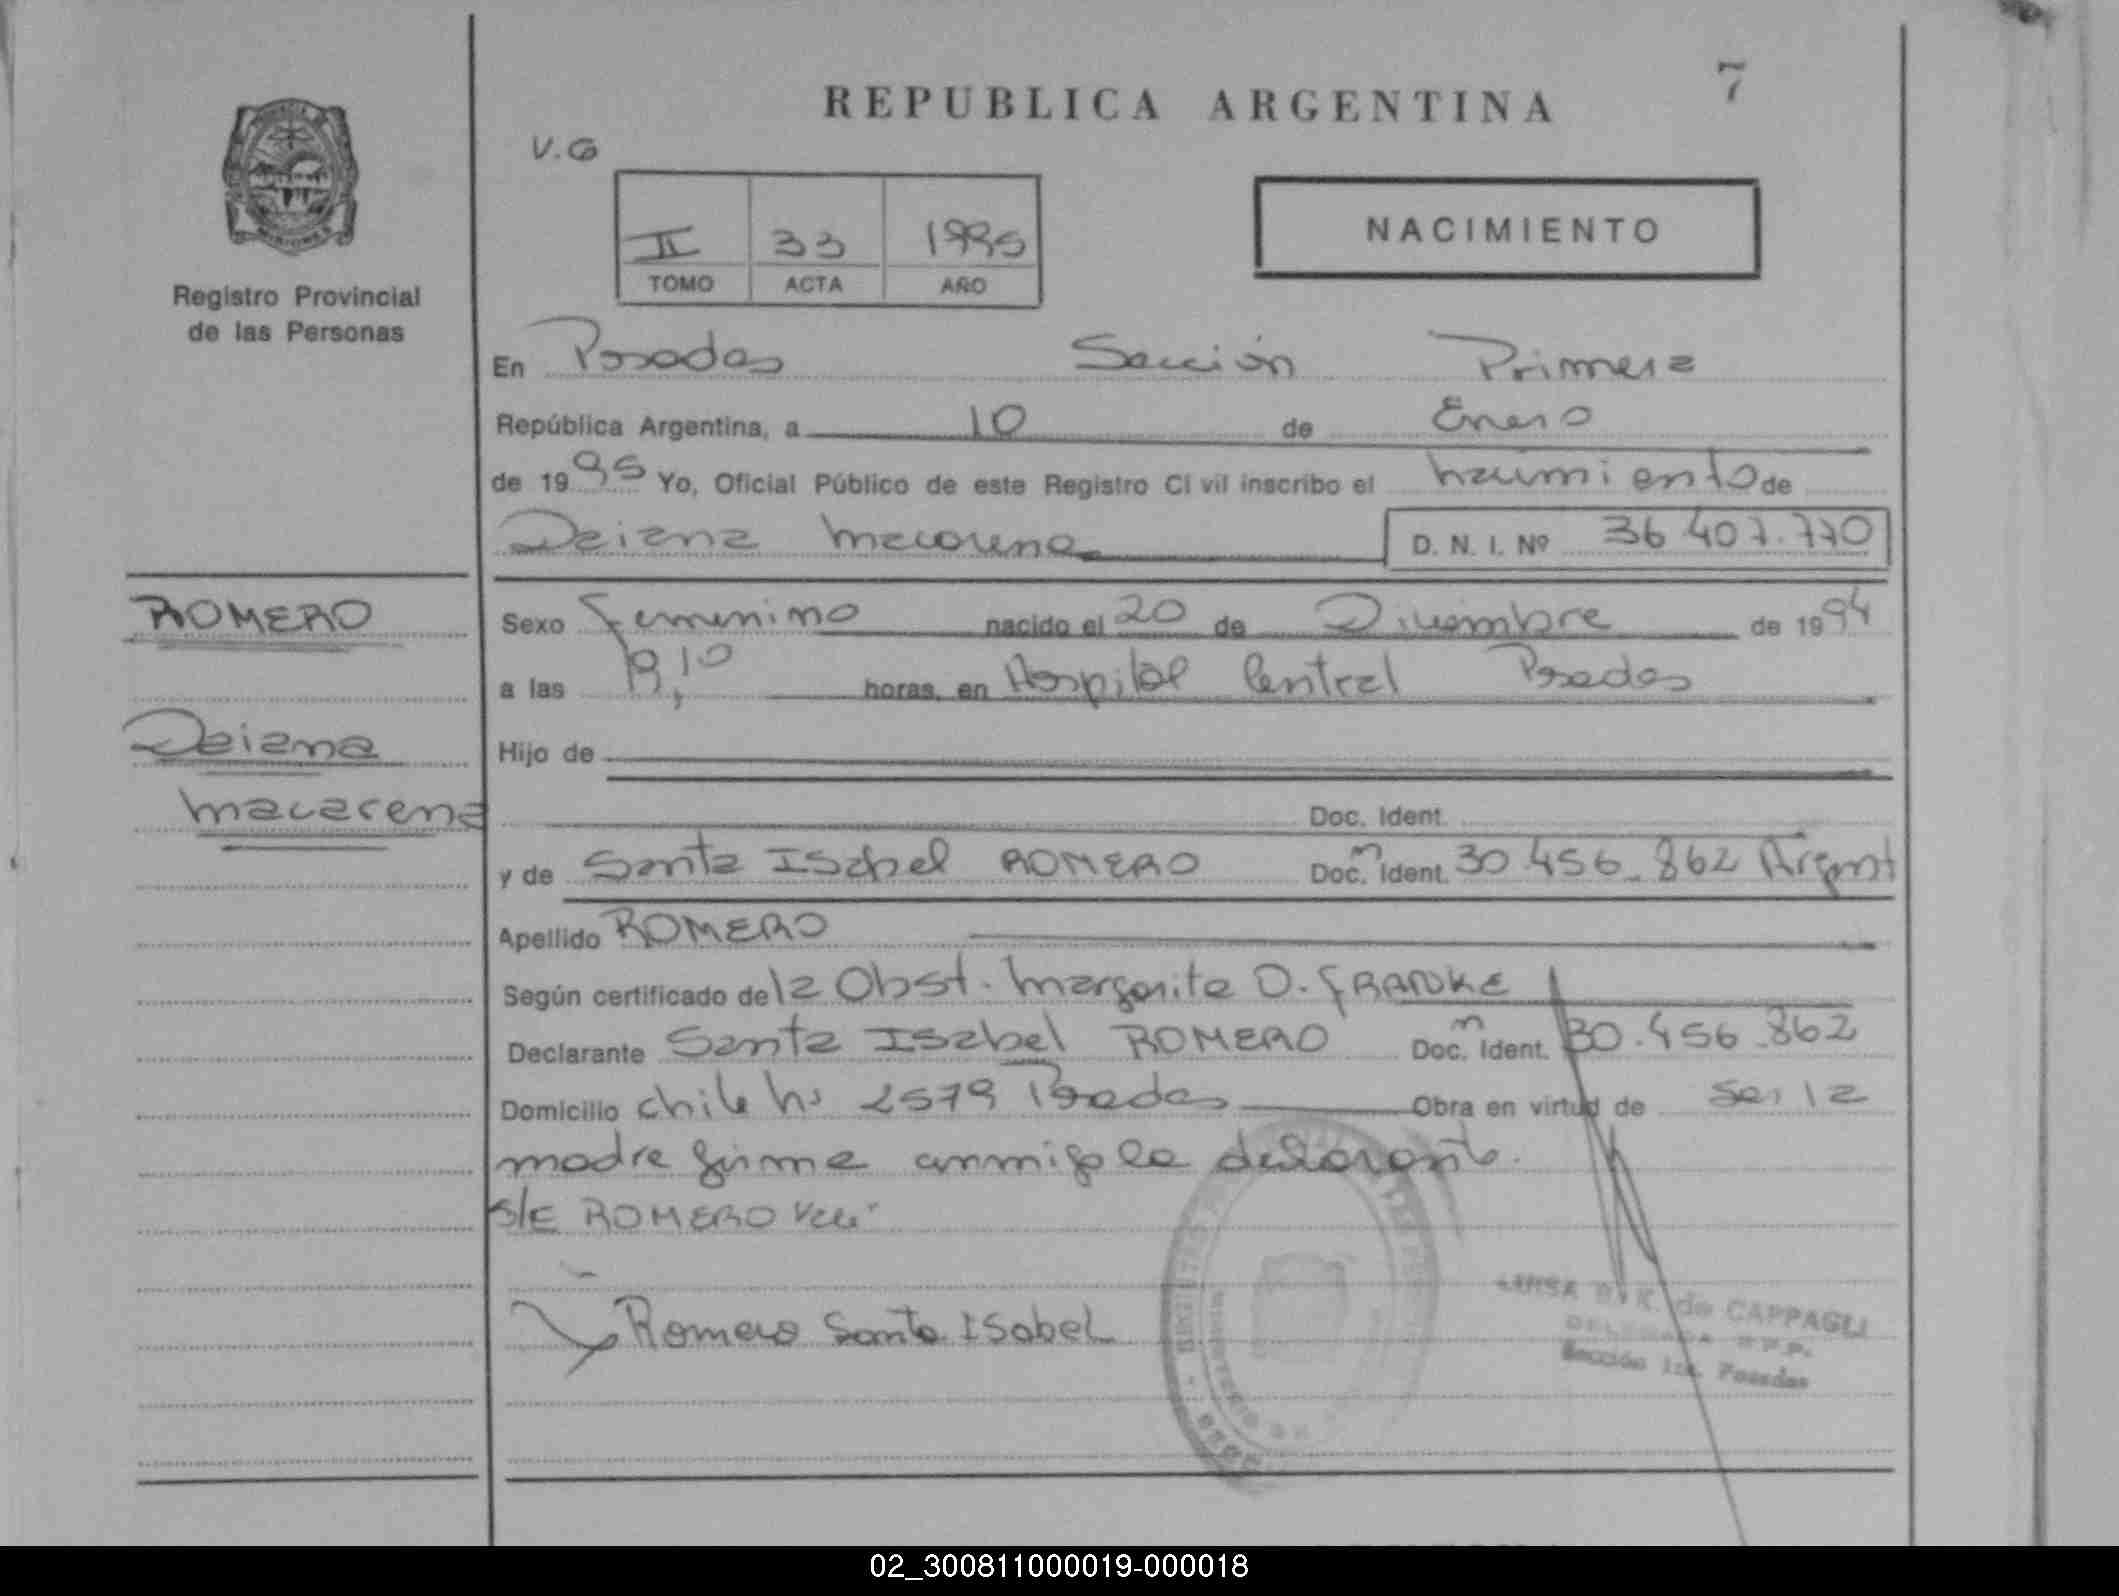 REPUBLICA ARGENTINA
7
V.G
II 33 1995
TOMO ACTA AÑO
NACIMIENTO
MISIONES
Registro Provincial
de las Personas
En Posadas Sección Primera
República Argentina, a 10 de Enero
de 1995 Yo, Oficial Público de este Registro Ci vil inscribo el nacimiento de
Daiana Macarena D. N. I. Nº 36 407.770
ROMERO
Daiana
Macarena
Sexo Femenino nacido el 20 de Diciembre de 1994
a las 19,10 horas, en Hospital Central Posadas
Hijo de
Doc. Ident.
y de Santa Isabel ROMERO Doc. Ident. 30 456.862 Argent
Apellido ROMERO
Según certificado de la Obst. Margarita O. FRANKE
Declarante Santa Isabel ROMERO Doc. Ident. 30.456.862
Domicilio Chile Nº 2579 Posadas Obra en virtud de Ser la
madre firma conmigo la declarante.
S/E ROMERO Vale
Romero Santa Isabel
LUISA B. K. de CAPPAGLI
DELEGADA R.P.P.
Sección 1ra. Posadas
02_300811000019-000018